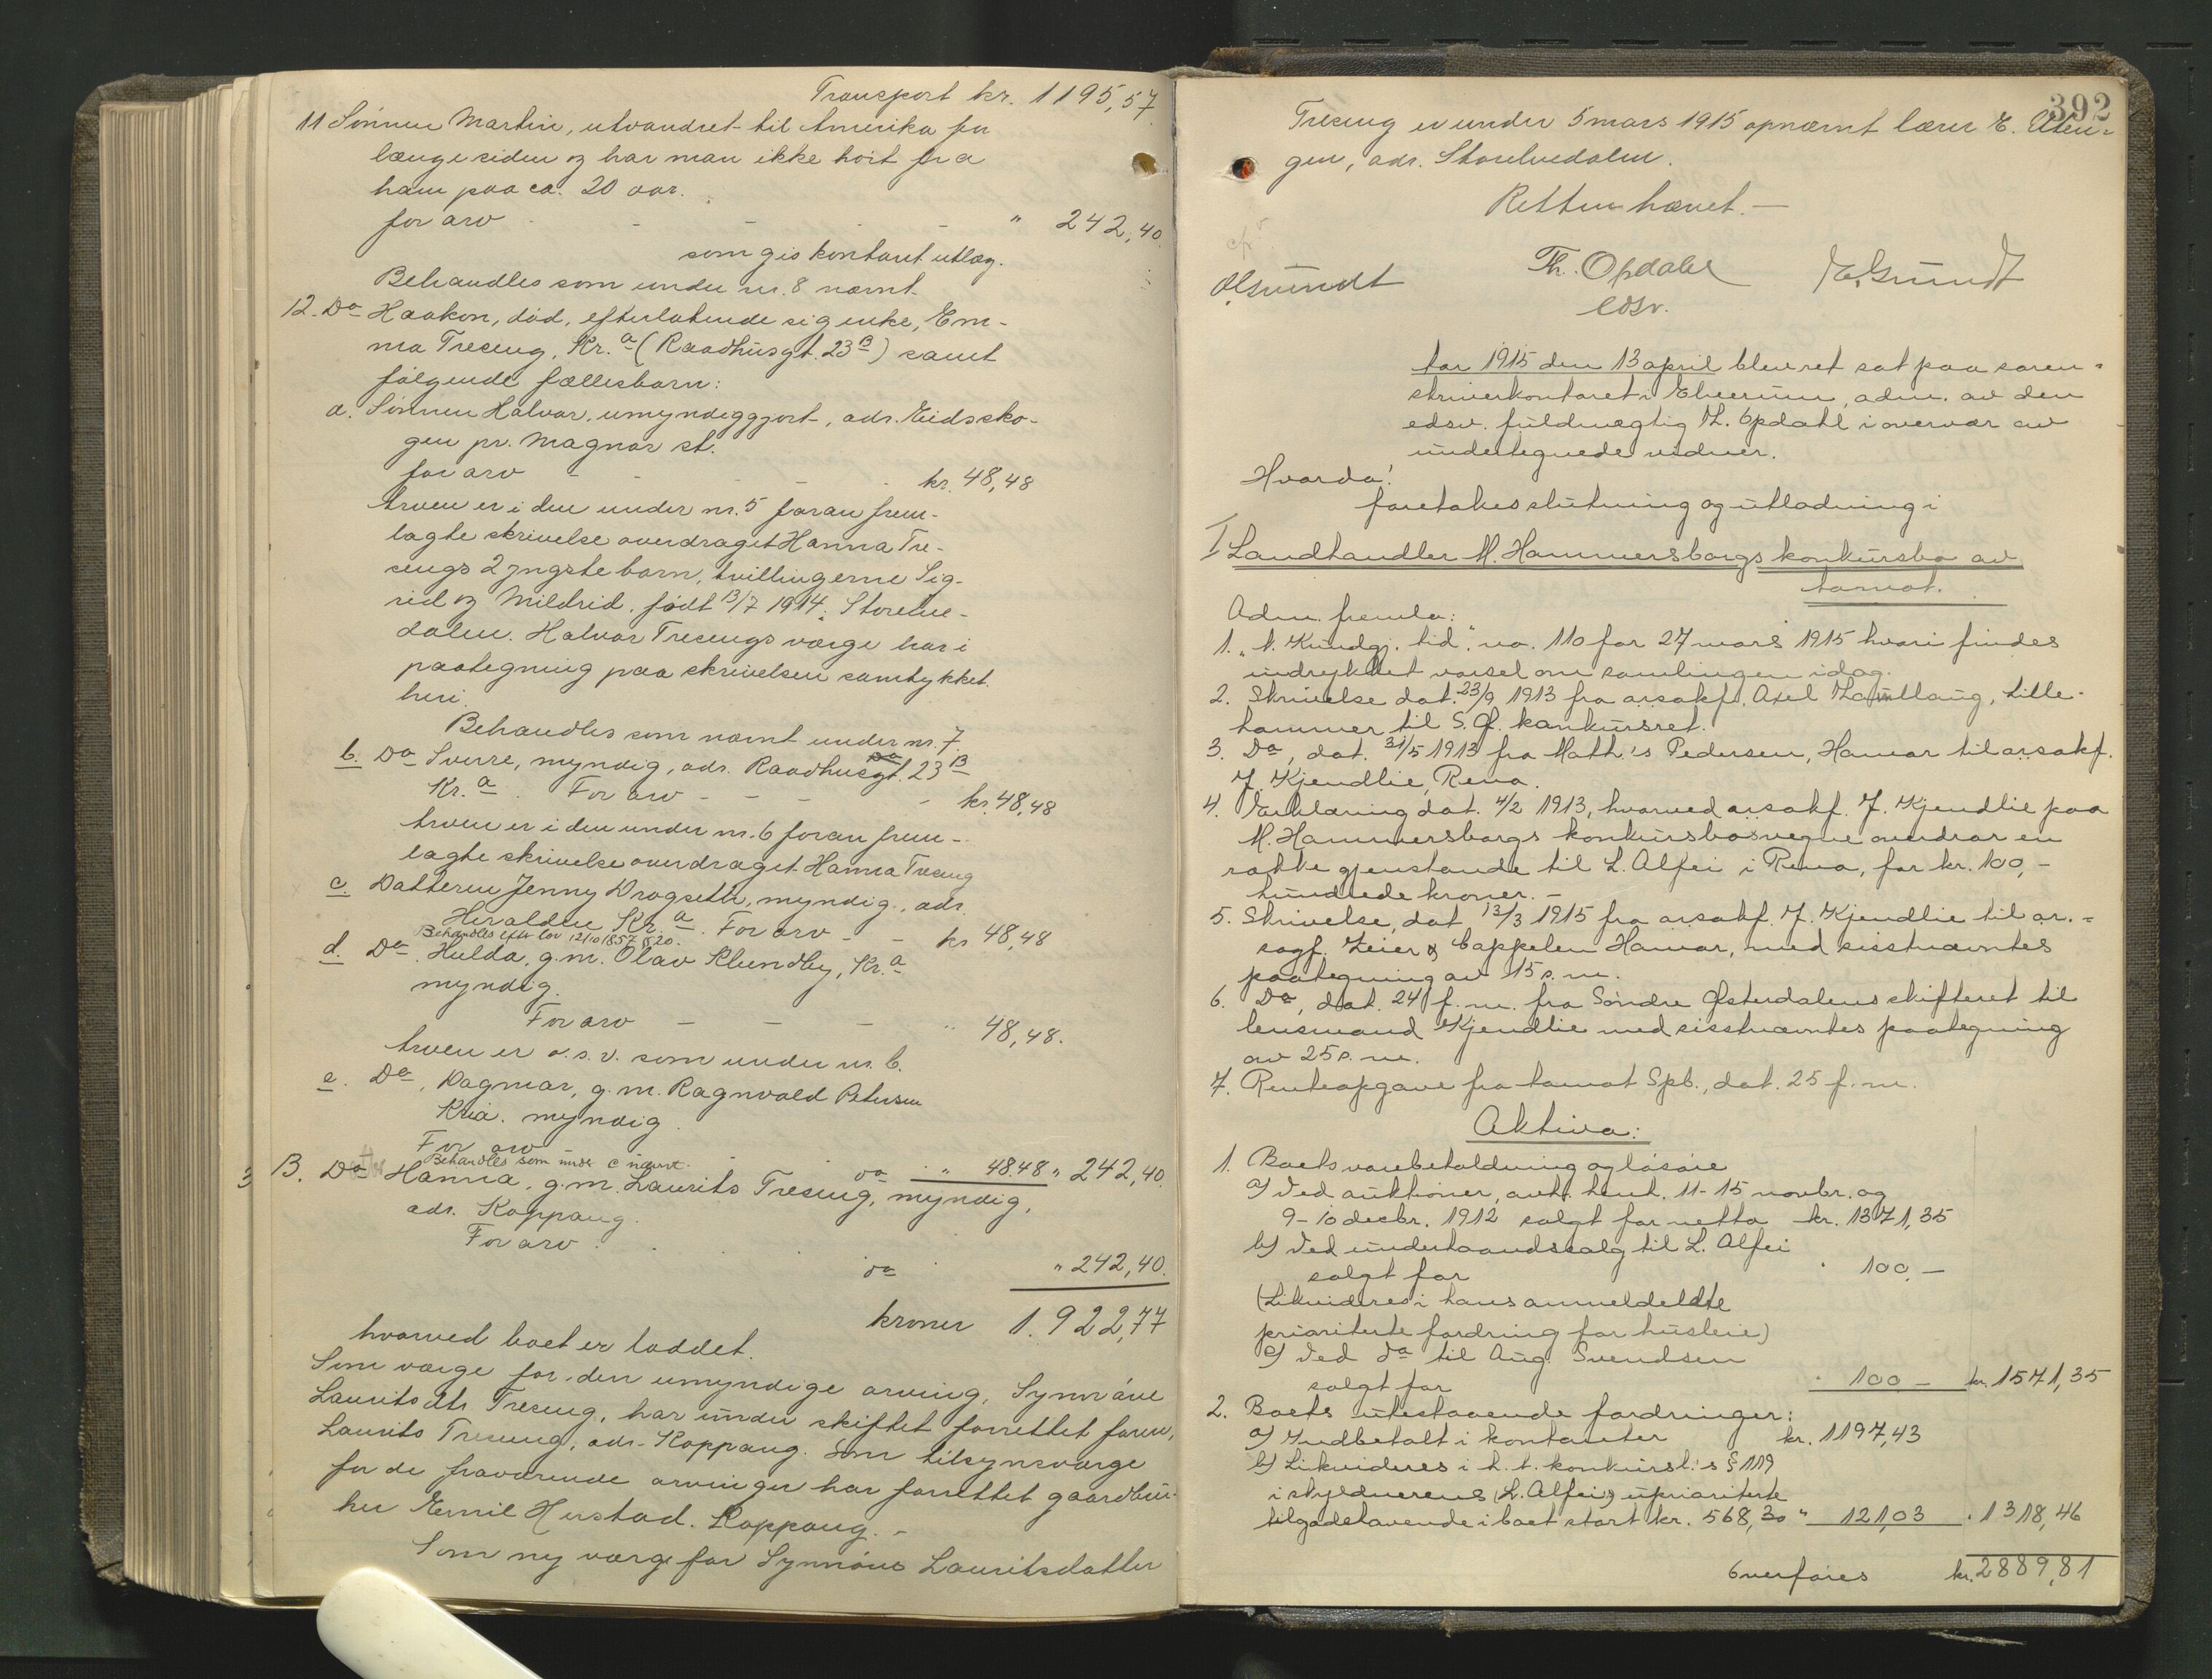 Transport kr. 1195,57
11 Sønnen Martin, utvandret til Amerika for
længe siden og har man ikke hørt fra
ham paa ca. 20 aar.
for arv - - - " 242,40.
som gis kontant utlæg.
Behandles som under nr. 8 nævnt.
12. Do Haakon, død, efterlatende sig enke, Em-
ma Treseng, Kr.a (Raadhusgt. 23B) samt
følgende fællesbarn:
a. Sønnen Halvor, umyndiggjort, adr. Eidssko-
gen pr. Magnor st.
for arv - - - kr. 48,48
Arven er i den under nr. 5 foran frem-
lagte skrivelse overdraget Hanna Tre-
sengs 2 yngste barn, tvillingerne Sig-
rid og Mildrid, født 13/7 1914, Storelve-
dalen. Halvor Tresengs værge har i
paategning paa skrivelsen samtykket
heri.
Behandles som nævnt under nr. 7.
b. Do Sverre, myndig, adr. Raadhusgt. 23B
Kr.a. For arv - - - kr. 48,48
Arven er i den under nr. 6 foran frem-
lagte skrivelse overdraget Hanna Treseng
c. Datteren Jenny Dragseth, myndig, adr.
Heralden Kr.a. For arv - - kr 48,48
Behandles efter lov 12/10 1857 § 20.
d. Do Hulda, g.m. Olav Klundby, Kr.a
myndig.
For arv - - - " 48,48.
Arven er o.s.v. som under nr. b.
e. Do, Dagmar, g.m. Ragnvald Petersen
Kria. myndig.
For arv
Behandles som under c nævnt. do " 48.48 " 242,40.
13. Do Hanna, g.m. Laurits Treseng, myndig,
adr. Koppang.
For arv . . . do . " 242,40.
kroner 1.922,77
hvorved boet er loddet.
Som værge for den umyndige arving, Synnøve
Lauritsdtr Treseng, har under skiftet forrettet faren,
Laurits Treseng, adr. Koppang. Som tilsynsværge
for de fraværende arvinger har forrettet gaardbru-
ker Emil Hustad. Koppang. -
Som ny værge for Synnøve Lauritsdatter
392
Treseng er under 5 mars 1915 opnævnt lærer E. Uten-
gen, adr. Storelvedalen.
Retten hævet. -
Th. Opdahl
edsv.
O. Grundt
E. Grundt
Aar 1915 den 13 april blev ret sat paa soren-
skriverkontoret i Elverum, adm. av den
edsv. fuldmægtig Th. Opdahl i overvær av
undertegnede vidner.
Hvorda!
foretokes slutning og utlodning i
I Landhandler M. Hammersborgs konkursbo av
Aamot.
Adm. fremla:
1. "N. Kundgj. tid." no. 110 for 27 mars 1915 hvori findes
indrykket varsel om samlingen idag.
2. Skrivelse dat. 23/9 1913 fra o.r.sakf. Axel Thallaug, Lille-
hammer til S. Ø. konkursret.
3. Do, dat. 31/5 1913 fra Math.'s Pedersen, Hamar til o.r.sakf.
J. Kjendlie, Rena.
4. Erklæring dat. 4/2 1913, hvorved o.r.sakf. J. Kjendlie paa
M. Hammersborgs konkursbosvegne overdrar en
række gjenstande til L. Alfei i Rena, for kr. 100,-
hundrede kroner. -
5. Skrivelse, dat 13/3 1915 fra o.r.sakf. J. Kjendlie til o.r.-
sagf. Zeier & Cappelen Hamar, med sisstnævntes
paategning av 15 s.m.
6. Do, dat. 24 f.m. fra Søndre Østerdalens skifteret til
lensmand Kjendlie med sisstnævntes paategning
av 25 s.m.
7. Renteopgave fra Aamot Spb., dat. 25 f.m.
Aktiva:
1. Boets varebeholdning og løsøre
a) Ved auktioner, avh. henh. 11-15 novbr. og
9-10 decbr. 1912 solgt for netto kr. 1371,35
b) Ved underhaandssalg til L. Alfei
solgt for " 100,-
(Likvideres i hans anmeldeldte
prioriterte fordring for husleie)
c) Ved do til Aug. Svendsen
solgt for " 100 - kr. 1571,35
2. Boets utestaaende fordringer:
a) Indbetalt i kontanter kr. 1197,43
b) Likvideres i h.t. konkursl.'s § 119
i skyldnerens (L. Alfei) uprioriterte
tilgodehavende i boet stort kr. 568,30 " 121,03 " 1318,46
Overføres kr. 2889,81